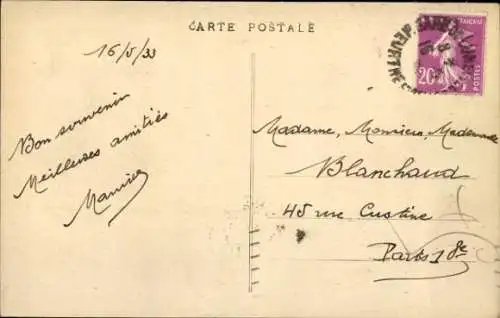 CARTE POSTALE
16/5/33
Bon souvenir
Meilleures amitiés
Maurice
FRANÇAISE
20c
POSTES
Madame, Monsieur, Mademoiselle
Blanchaud
45 rue Custine
Paris 18e